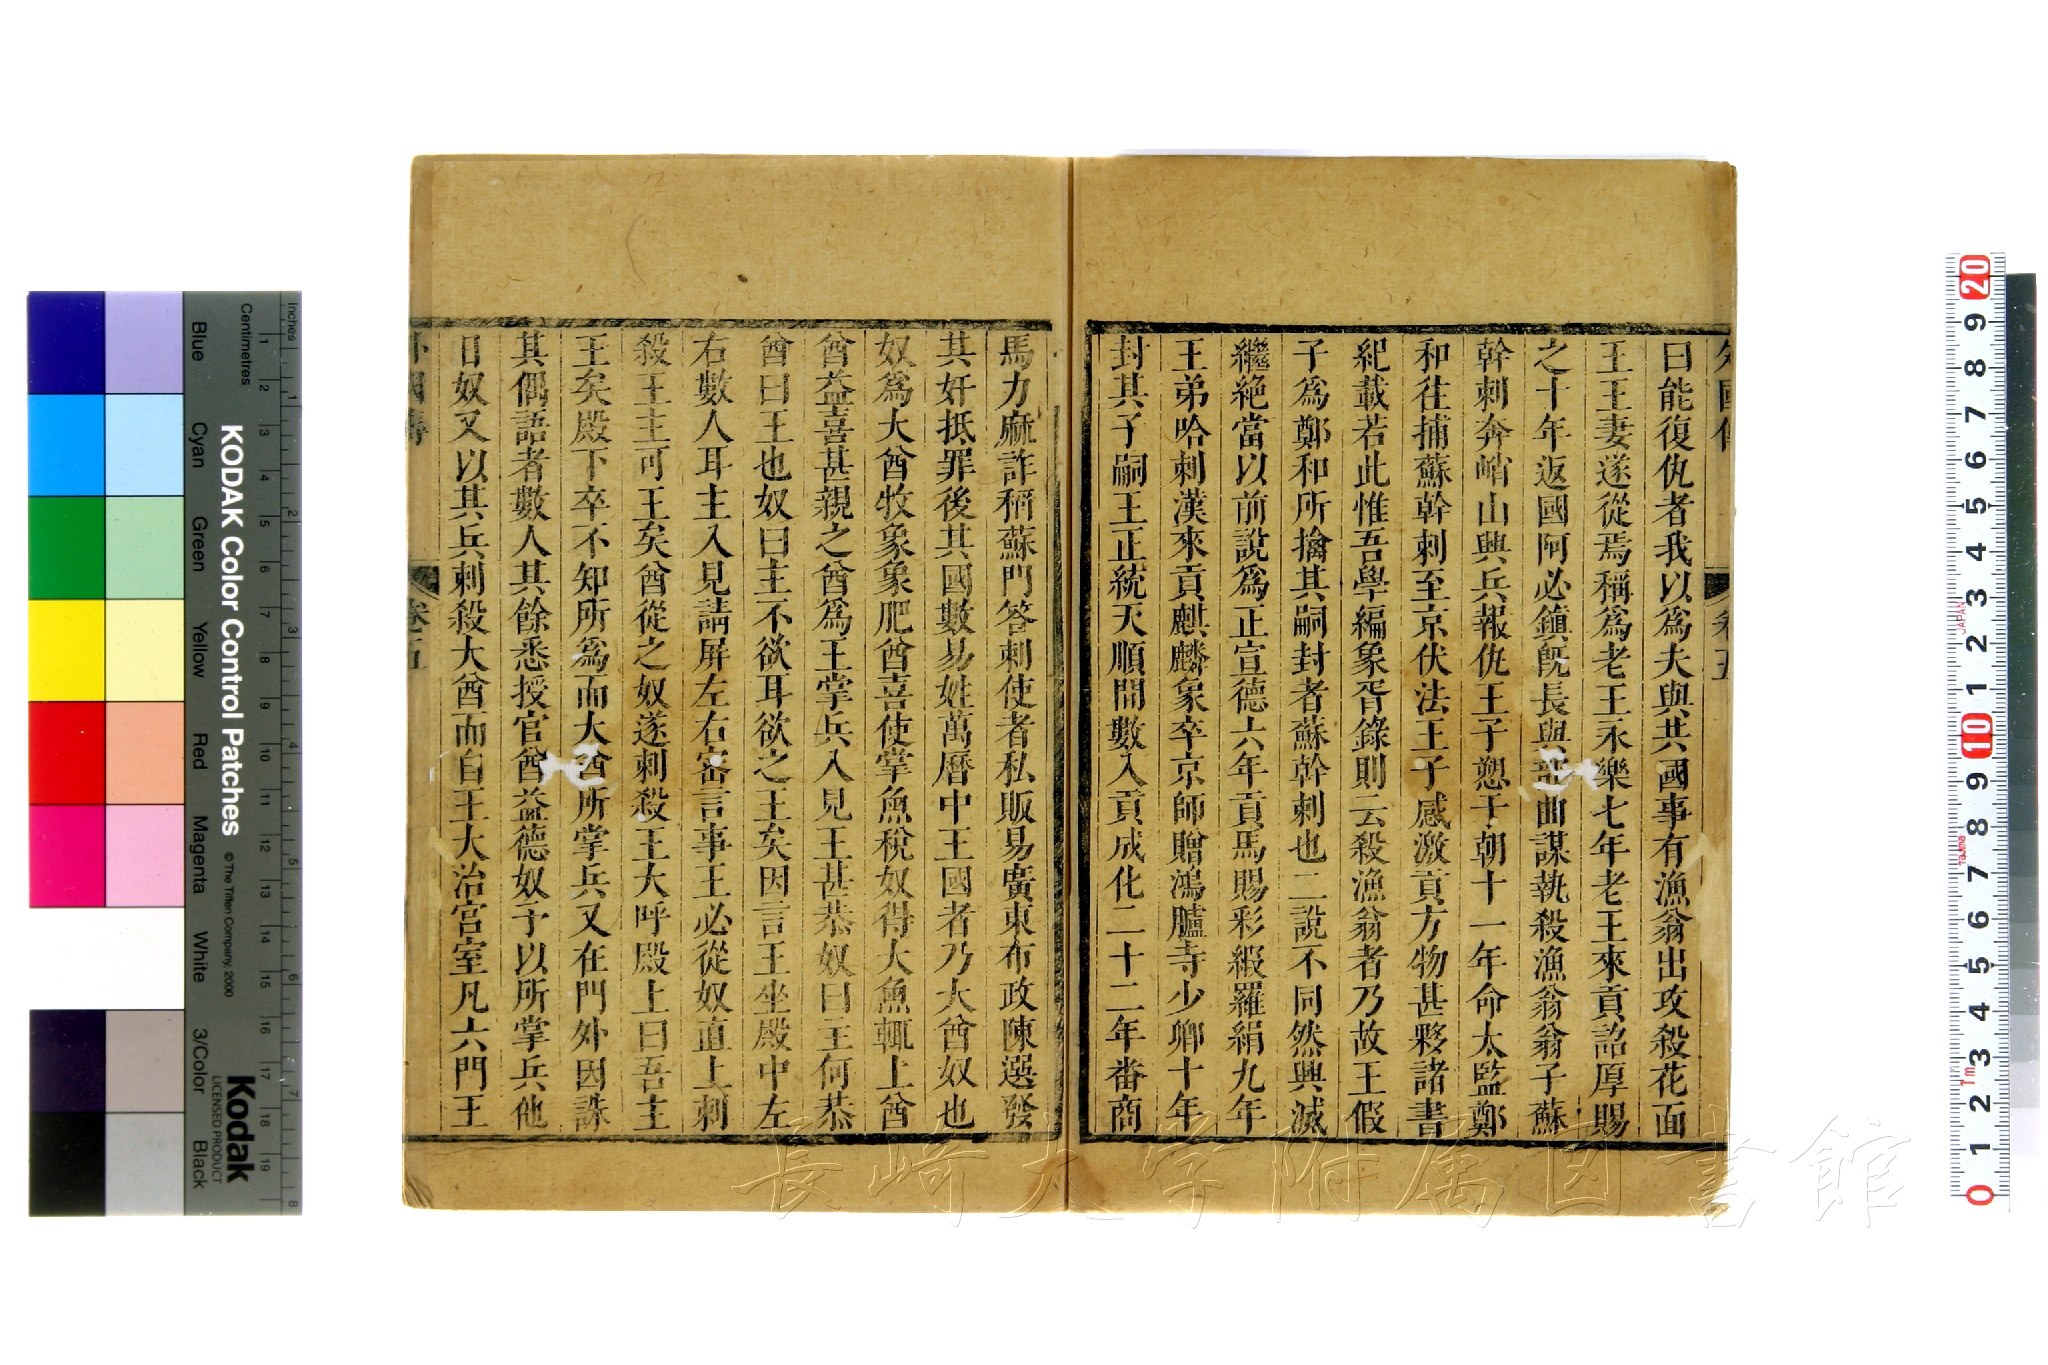 外國傳
卷五
曰能復仇者我以爲夫與共國事有漁翁出攻殺花面
王王妻遂從焉稱爲老王永樂七年老王來貢詔厚賜
之十年返國阿必鎮旣長與部曲謀執殺漁翁翁子蘇
幹剌奔峭山興兵報仇王子愬于朝十一年命太監鄭
和往捕蘇幹剌至京伏法王子感激貢方物甚夥諸書
紀載若此惟吾學編象胥錄則云殺漁翁者乃故王假
子爲鄭和所擒其嗣封者蘇幹剌也二說不同然興滅
繼絶當以前說爲正宣德六年貢馬賜彩緞羅絹九年
王弟哈剌漢來貢麒麟象卒京師贈鴻臚寺少卿十年
封其子嗣王正統天順間數入貢成化二十二年番商
馬力麻詐稱蘇門答剌使者私販易廣東布政陳選發
其奸抵罪後其國數易姓萬曆中王國者乃大酋奴也
奴爲大酋牧象象肥酋喜使掌魚稅奴得大魚輒上酋
酋益喜甚親之酋爲王掌兵入見王甚恭奴曰主何恭
酋曰王也奴曰主不欲耳欲之王矣因言王坐殿中左
右數人耳主入見請屏左右密言事王必從奴直上刺
殺王主可王矣酋從之奴遂刺殺王大呼殿上曰吾主
王矣殿下卒不知所爲而大酋所掌兵又在門外因誅
其偶語者數人其餘悉授官酋益德奴予以所掌兵他
日奴又以其兵刺殺大酋而自王大治宮室凡六門王
外國傳
卷五
KODAK Color Control Patches
© The Tiffen Company, 2000
Kodak
LICENSED PRODUCT
Inches
Centimetres
Blue
Cyan
Green
Yellow
Red
Magenta
White
3/Color
Black
JAPAN
Tajima
長崎大学附属図書館